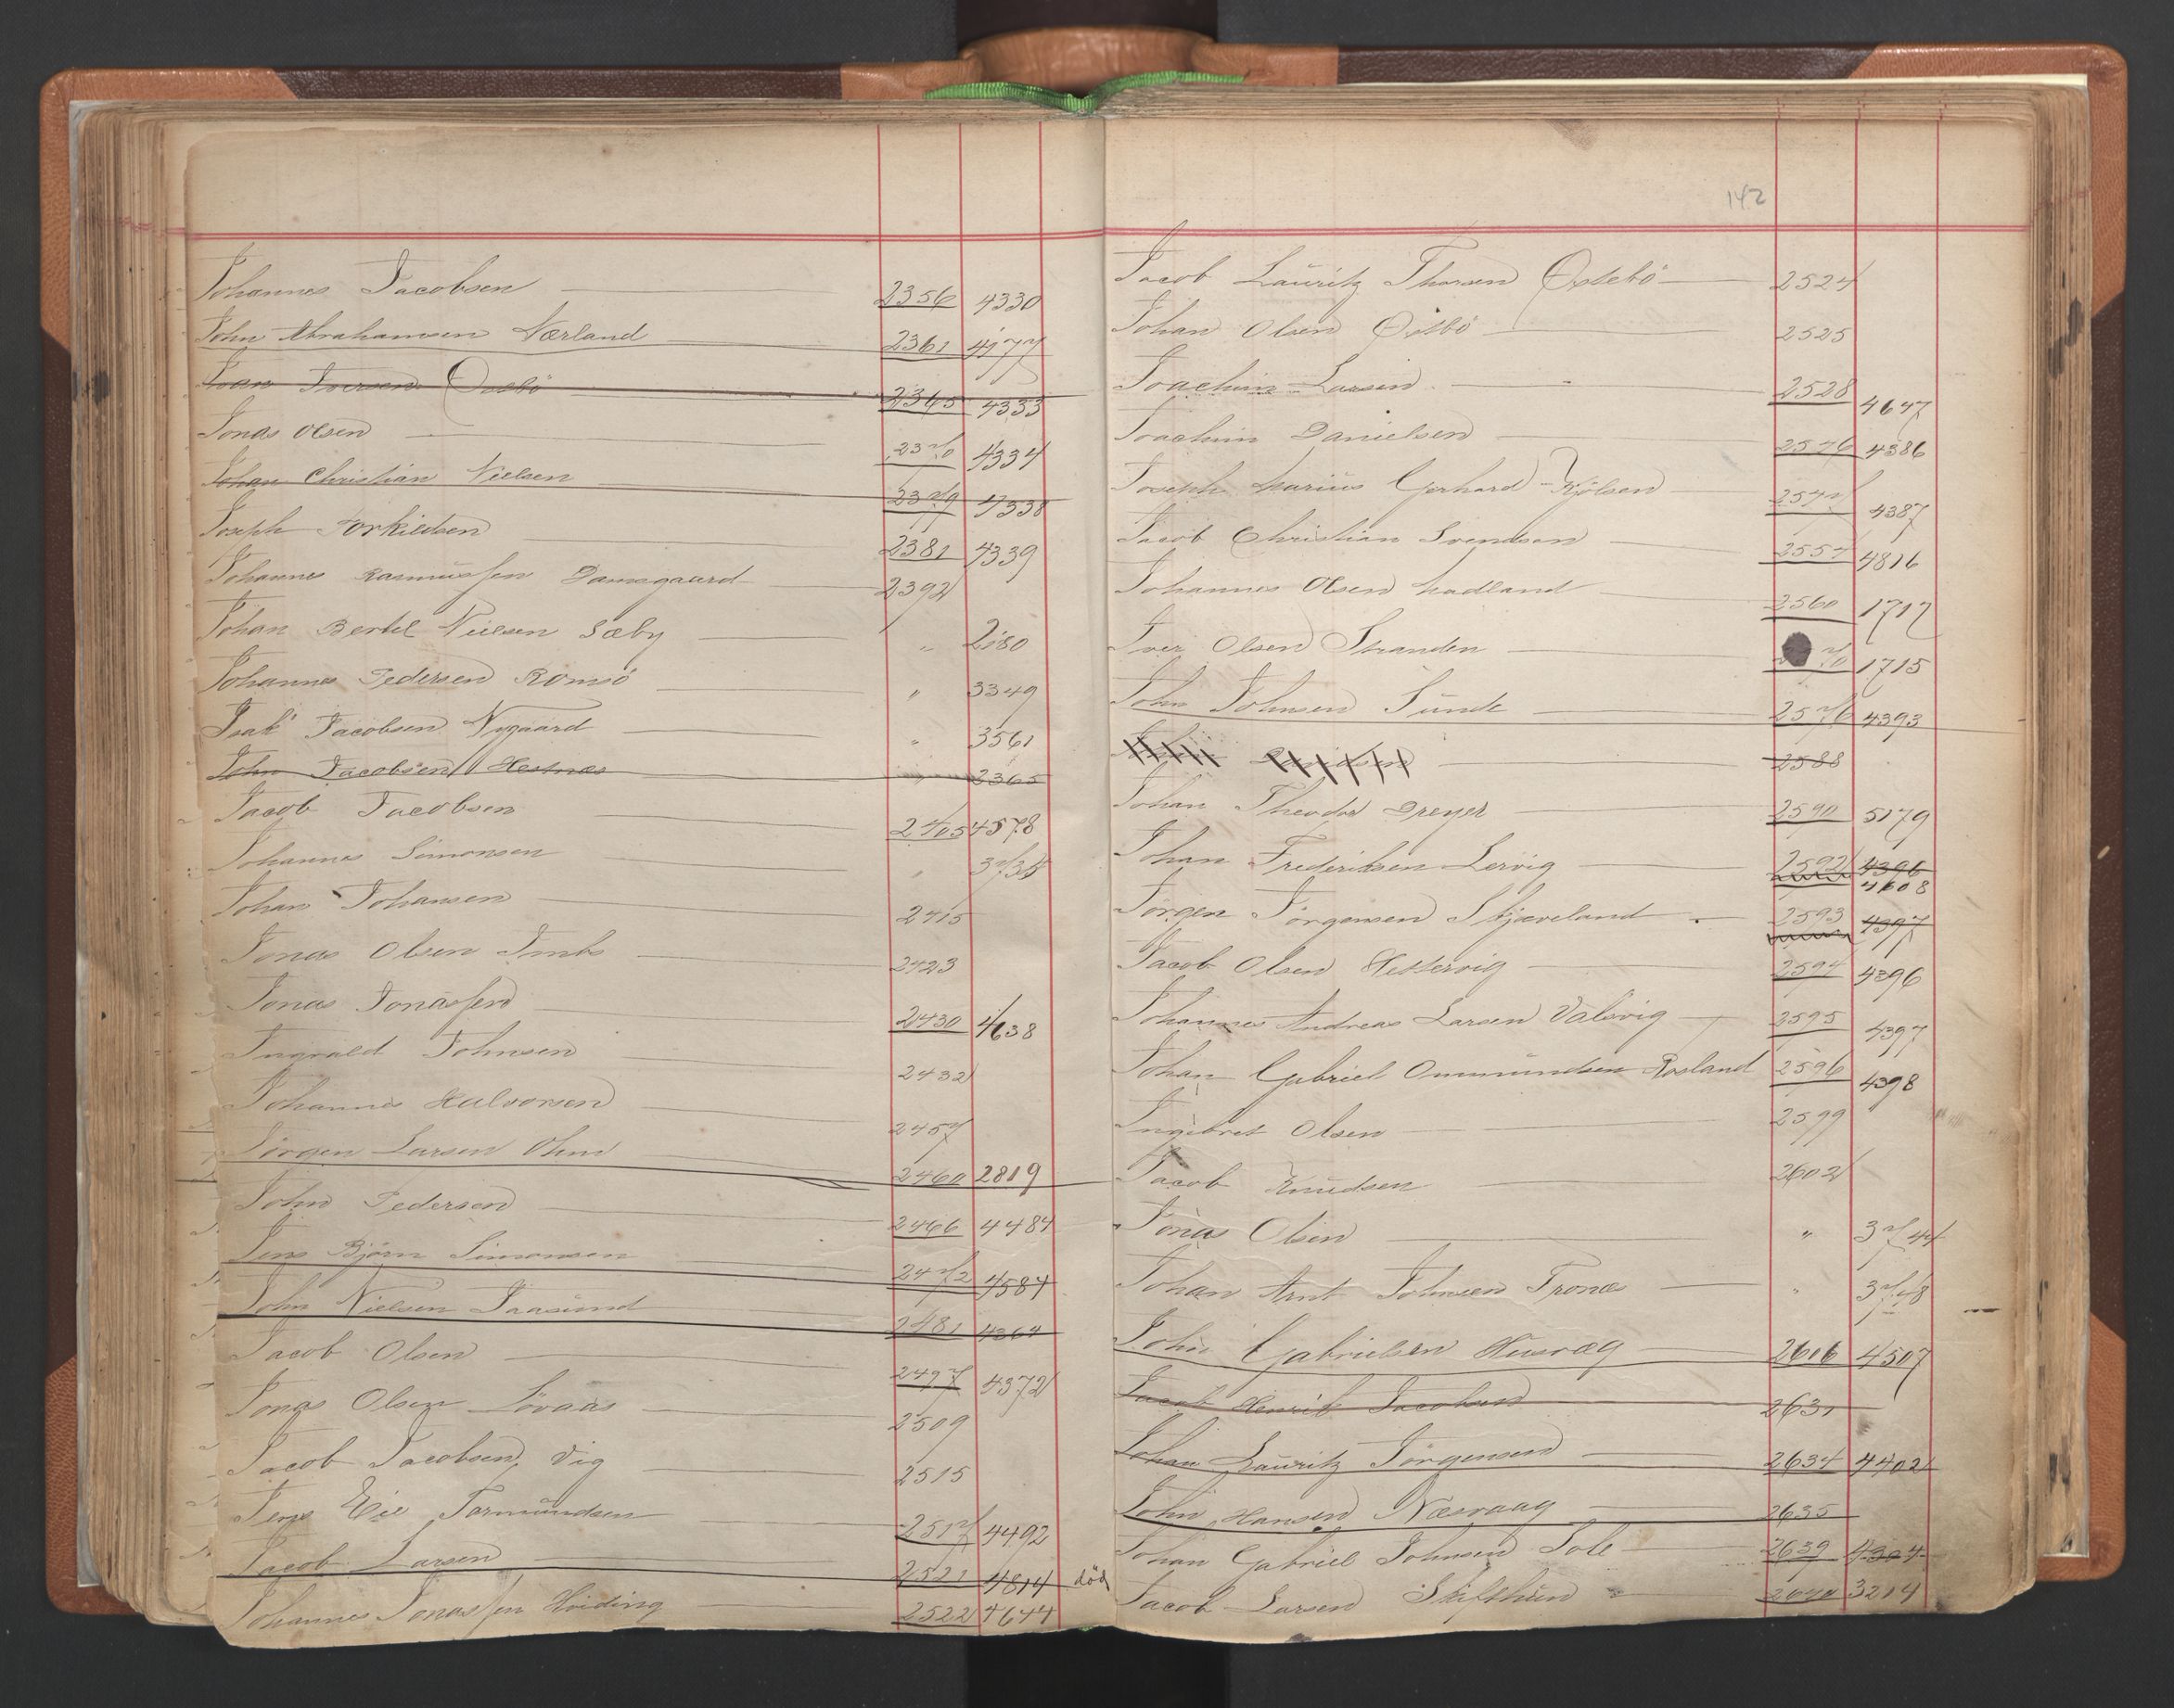 Johannes Jacobsen 2356 4330
John Abrahamsen Nærland 2361 4177
Ivar Iversen Östbö 2365 4333
Jonas Olsen 2370 4334
Johan Christian Nielsen 2379 4338
Joseph Torkildsen 2381 4339
Johannes Rasmussen Damsgaard 2392
Johan Bertel Nielsen Sæby " 2180
Johannes Pedersen Romsö " 3349
Isak Jacobsen Nygaard " 3561
John Jacobsen Hestnæs " 2365
Jacob Jacobsen 2405 4578
Johannes Simonsen " 3735
Johan Johansen 2415
Jonas Olsen 2423
Jonas Jonassen 2430 4638
Ingvald Johnsen 2432
Johannes Halvorsen 2457
Jörgen Larsen Ohm 2460 2819
John Pedersen 2466 4484
Jens Björn Simonsen 2472 4584
John Nielsen Taasund 2481 4364
Jacob Olsen 2497 4372
Jonas Olsen Lövaas 2509
Jacob Jacobsen Vig 2515
Jens Eie Tormundsen 2517 4492
Jacob Larsen 2521 4814 död
Johannes Jonassen Hviding 2522 4644
142
Jacob Lauritz Thorsen Östebö 2524
Johan Olsen Östbö 2525
Joachim Larsen 2528 4647
Joachim Danielsen 2546 4386
Joseph Marius Gerhard Kjölsen 2547 4387
Jacob Christian Svendsen 2557 4816
Johannes Olsen Hadland 2560 1717
Iver Olsen Stranden 70 1715
John Johnsen Sunde 2576 4393
2588
Johan Theodor Dreyer 2590 5179
Johan Frederiksen Lervig 2592 4396
4608
Jörgen Jörgensen Skjæveland 2593 4397
Jacob Olsen Hettervig 2594 4396
Johannes Andreas Larsen Valsvig 2595 4397
Johan Gabriel Ommundsen Rosland 2596 4398
Ingebret Olsen 2599
Jacob Knudsen 2602
Jonas Olsen " 3744
Johan Arnt Johnsen Tronæs " 3748
John Gabrielsen Husvæg 2616 4507
Jacob Henrik Jacobsen 2631
Johan Lauritz Jörgensen 2634 4402
John Hansen Næsvaag 2635
Johan Gabriel Johnsen Sole 2639 4304
Jacob Larsen Skifthun 3214